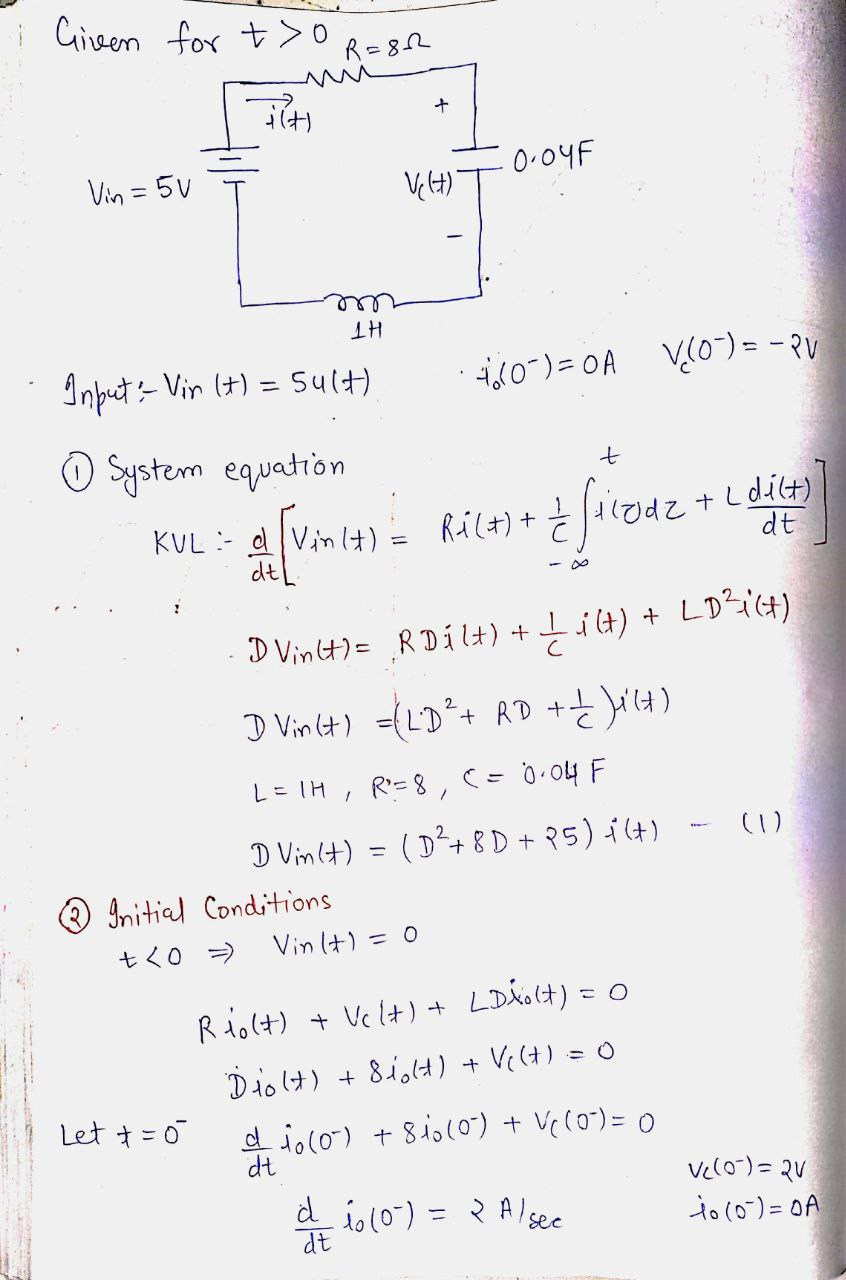 Given for t > 0
R = 8Ω
i(t)
+
Vin = 5V
Vc(t)
0.04F
−
1H
Input :- Vin (t) = 5u(t)
i₀(0⁻) = 0A Vc(0⁻) = -2V
① System equation
KVL :- d/dt [Vin(t) = Ri(t) + 1/C ∫_{-∞}^{t} i(τ)dτ + L di(t)/dt]
D Vin(t) = RDi(t) + 1/C i(t) + LD²i(t)
D Vin(t) = (LD² + RD + 1/C) i(t)
L = 1H , R = 8 , C = 0.04 F
D Vin(t) = (D² + 8D + 25) i(t) - (1)
② Initial Conditions
t < 0 ⇒ Vin(t) = 0
R i₀(t) + Vc(t) + LDi₀(t) = 0
Di₀(t) + 8i₀(t) + Vc(t) = 0
Let t = 0⁻ d/dt i₀(0⁻) + 8i₀(0⁻) + Vc(0⁻) = 0
Vc(0⁻) = 2V
d/dt i₀(0⁻) = 2 A/sec
i₀(0⁻) = 0A